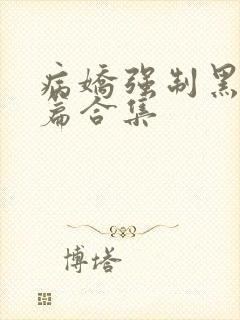 病嬌强制黑
篇合集
博塔